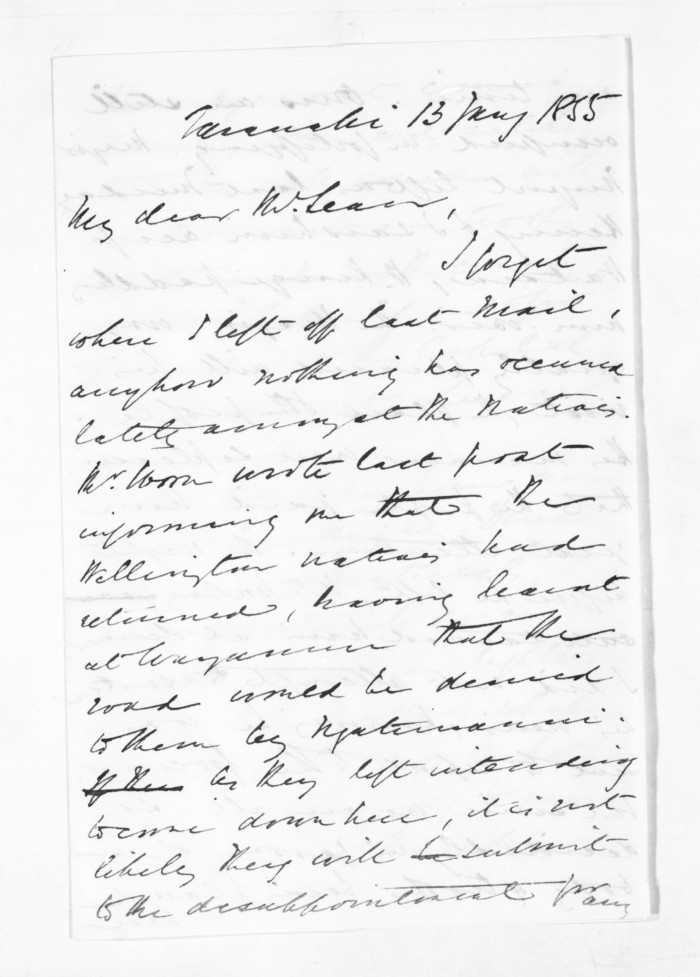 Taranaki 13 Jany 1855
My dear McLean,
I forget
where I left off last Mail,
anyhow nothing has occurred
lately amongst the Natives.
Mr. Woon wrote last post
informing me that the
Wellington natives had
returned, having learnt
at Wanganui that the
road would be denied
to them by Ngatiruanui.
If they As they left intending
to come down here, it is not
likely they will be submit
to the disappointment for any